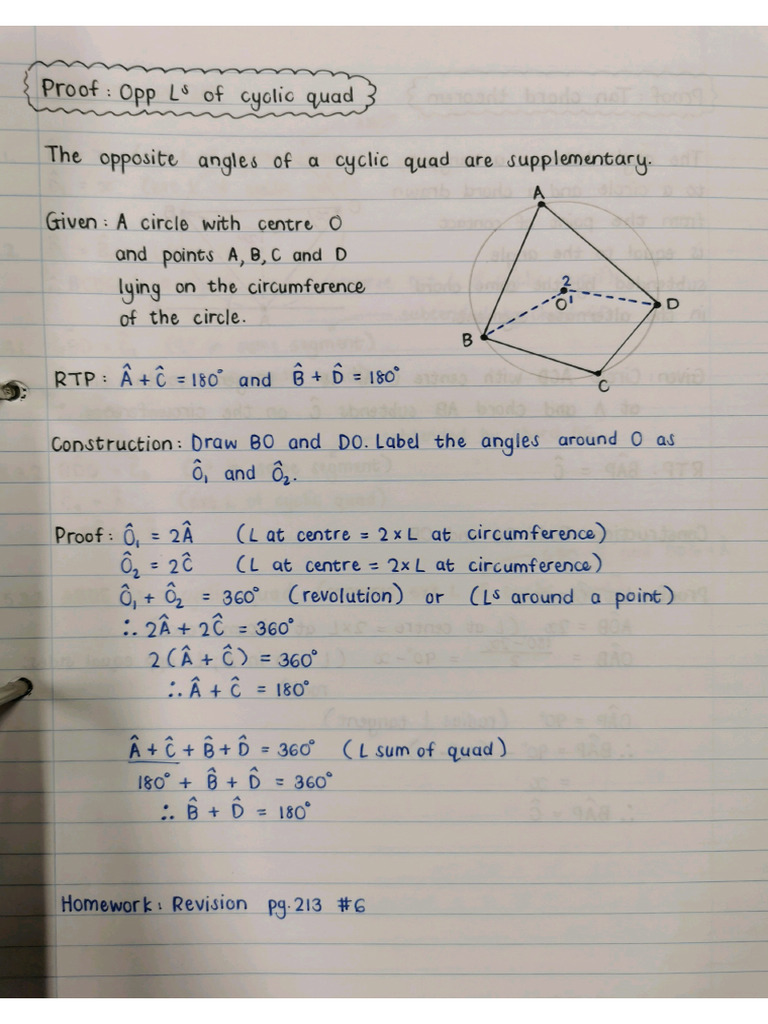 Proof: Opp Lˢ of cyclic quad
The opposite angles of a cyclic quad are supplementary.
Given: A circle with centre O
and points A, B, C and D
lying on the circumference
of the circle.
A
2
O 1
D
B
C
RTP: Â + Ĉ = 180° and B̂ + D̂ = 180°
Construction: Draw BO and DO. Label the angles around O as
Ô₁ and Ô₂.
Proof: Ô₁ = 2Â (L at centre = 2×L at circumference)
Ô₂ = 2Ĉ (L at centre = 2×L at circumference)
Ô₁ + Ô₂ = 360° (revolution) or (Lˢ around a point)
∴ 2Â + 2Ĉ = 360°
2(Â + Ĉ) = 360°
∴ Â + Ĉ = 180°
Â + Ĉ + B̂ + D̂ = 360° (L sum of quad)
180° + B̂ + D̂ = 360°
∴ B̂ + D̂ = 180°
Homework: Revision pg. 213 #6